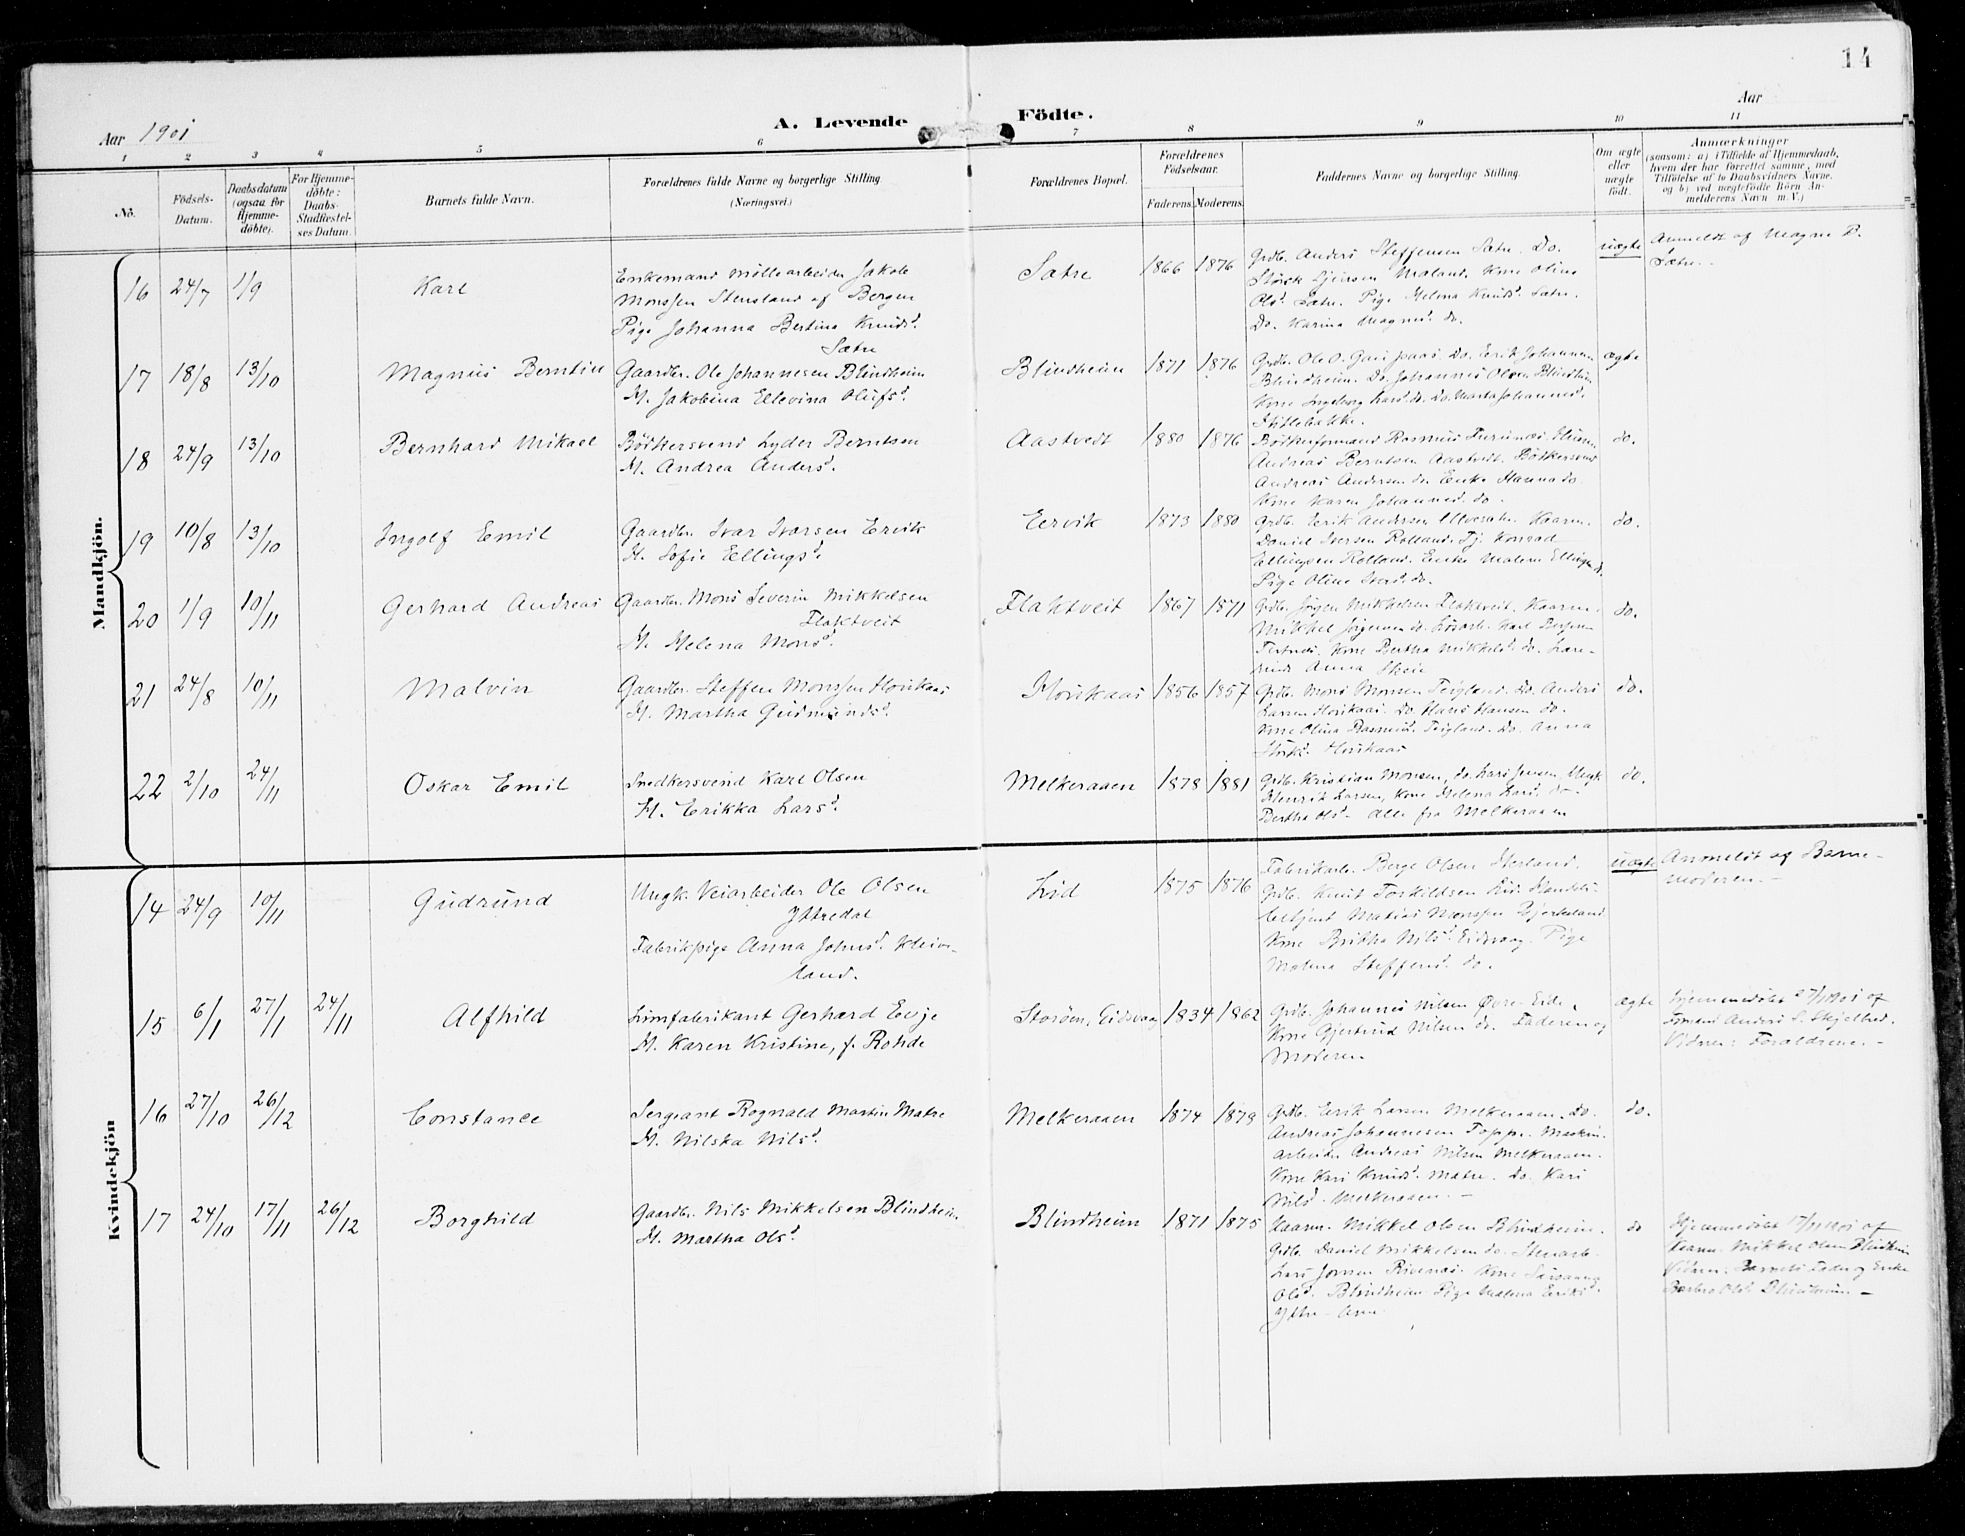 14
Aar 1901
A. Levende Födte.
Aar
1 2 3 4 5 6 7 8 9 10 11
No.
Födsels-Datum.
Daabsdatum (ogsaa for Hjemmedöbte).
For Hjemmedöbte: Daabs-Stadfæstelses Datum.
Barnets fulde Navn.
Forældrenes fulde Navne og borgerlige Stilling (Næringsvei.)
Forældrenes Bopæl.
Forældrenes Födselsaar.
Faderens. Moderens.
Faddernes Navne og borgerlige Stilling.
Om ægte eller uægte födt.
Anmærkninger
(saasom: a) i Tilfælde af Hjemmedaab, hvem der har forrettet samme, med Tilföielse af to Daabsvidners Navne, og b) ved uægtefödte Börn Anmelderens Navn m. V.)
Mandkjön.
16 24/7 1/9 Karl
Enkemand Møllearbeider Jakob
Monssen Stensland af Bergen
Pige Johanna Bertina Knudsd.
Sætre
Sætre 1866 1876
Grdb. Anders Steffensen Sætre. Do.
Pige Helena Knudsd. Sætre.
Do. Karina Magnusd. do.
uægte
Anmeldt af Magne B.
Sætre.
17 18/8 13/10 Magnus Berntin
Gaardbr. Ole Johannesen Blindheim
H. Jakobina Ellevina Olufsd.
Blindheim 1871 1876
Blindheim. Do. Johannes Olsen Blindheim
ægte
18 24/9 13/10 Bernhard Mikael
Bødkersvend Lyder Berntsen
H. Andrea Andersd.
Aastvedt 1880 1876
Andreas Berntsen Aastveit. Bödkersvend
Andreas Andersen do. Enke Hanna do.
Kone Karen Johannesd. do.
do.
19 10/8 13/10 Ingolf Emil
Gaardbr. Ivar Ivarsen Ervik
H. Sofie Ellingsd.
Eervik 1873 1880
Daniel Iversen Rolland. Tj. Konrad
Ellingsen Rolland. Enke Malene Ellingsd. do.
Pige Oline Iversd. do.
do.
20 1/9 10/11 Gerhard Andreas
Gaardbr. Mons Severin Mikkelsen
Flaktveit
H. Helena Monsd.
Flaktveit 1867 1871
Grdb. Jørgen Mikkelsen Flaktveit. Kaarm.
Kone Bertha Mikkelsd. do.
Anna Skeie
do.
21 24/8 10/11 Malvin
Gaardbr. Steffen Monssen Horikaas
H. Martha Gudmundsd.
Horikaas 1856 1857
Grdb. Mons Monsen Teigland. Do. Anders
Larsen Horikaas. Do. Hans Hansen do.
Kone Olina Rasmusd. Teigland. Do. Anna
Horikaas
do.
22 2/10 24/11 Oskar Emil
Snedkersvend Karl Olsen
H. Erikka Larsd.
Melkeraaen 1878 1881
Grdb. Kristian Monsen, do. Lars Jensen, Ungk.
Henrik Larsen, Kone Helena Larsd. do.
Bertha Olsd. - alle fra Melkeraaen
do.
Kvindekjön
14 24/9 10/11 Gudrund
Ungk. Veiarbeider Ole Olsen
Yttredal
Fabrikpige Anna Johnsd. Kleivland.
Lid 1875 1876
Fabrikarb. Berge Olsen Herland.
Grdb. Knut Torkildsen Lid. Handels-
betjent Matias Monssen Gjerkeland
Kone Britha Nilsd. Eidsvaag. Pige
Malena Steffensd. do.
uægte
Anmeldt af Barne-
moderen. -
15 6/1 27/1 24/11 Alfhild
Limfabrikant Gerhard Evje
H. Karen Kristine, f. Rohde
Storöen, Eidsvaag 1834 1862
Grdb. Johannes Nilsen Øvre-Eide,
Kone Gjertrud Nilsen do. Faderen og
Moderen
ægte
Hjemmedöbt 27/1 1901 af
Anders S. Skjelbred.
Vidner: Forældrene. -
16 27/10 26/12 Constance
Sergeant Rognald Martin Matre
H. Nilska Nilsd.
Melkeraaen 1874 1879
Grdb. Eerik Larsen Melkeraaen. Do.
Andreas Johannesen Toppe. Maskin-
arbeider Andreas Nilsen Melkeraaen.
Kone Kari Knudsd. Matre. Do. Kari
Nilsd. Melkeraaen. -
do.
17 24/10 17/11 26/12 Borghild
Gaardbr. Nils Mikkelsen Blindheim
H. Martha Olsd.
Blindheim 1871 1875
Kaarm. Mikkel Olsen Blindheim.
Grdb. Daniel Mikkelsen do. Stenarb.
Olsd. Blindheim. Pige Malena Eriksd.
Yttre-Arne.
do
Hjemmedöbt 17/11 1901 af
Kaarm. Mikkel Olsen Blindheim
Vidner: Barnets Fader og Enke
Barbro Olsd. Blindheim -